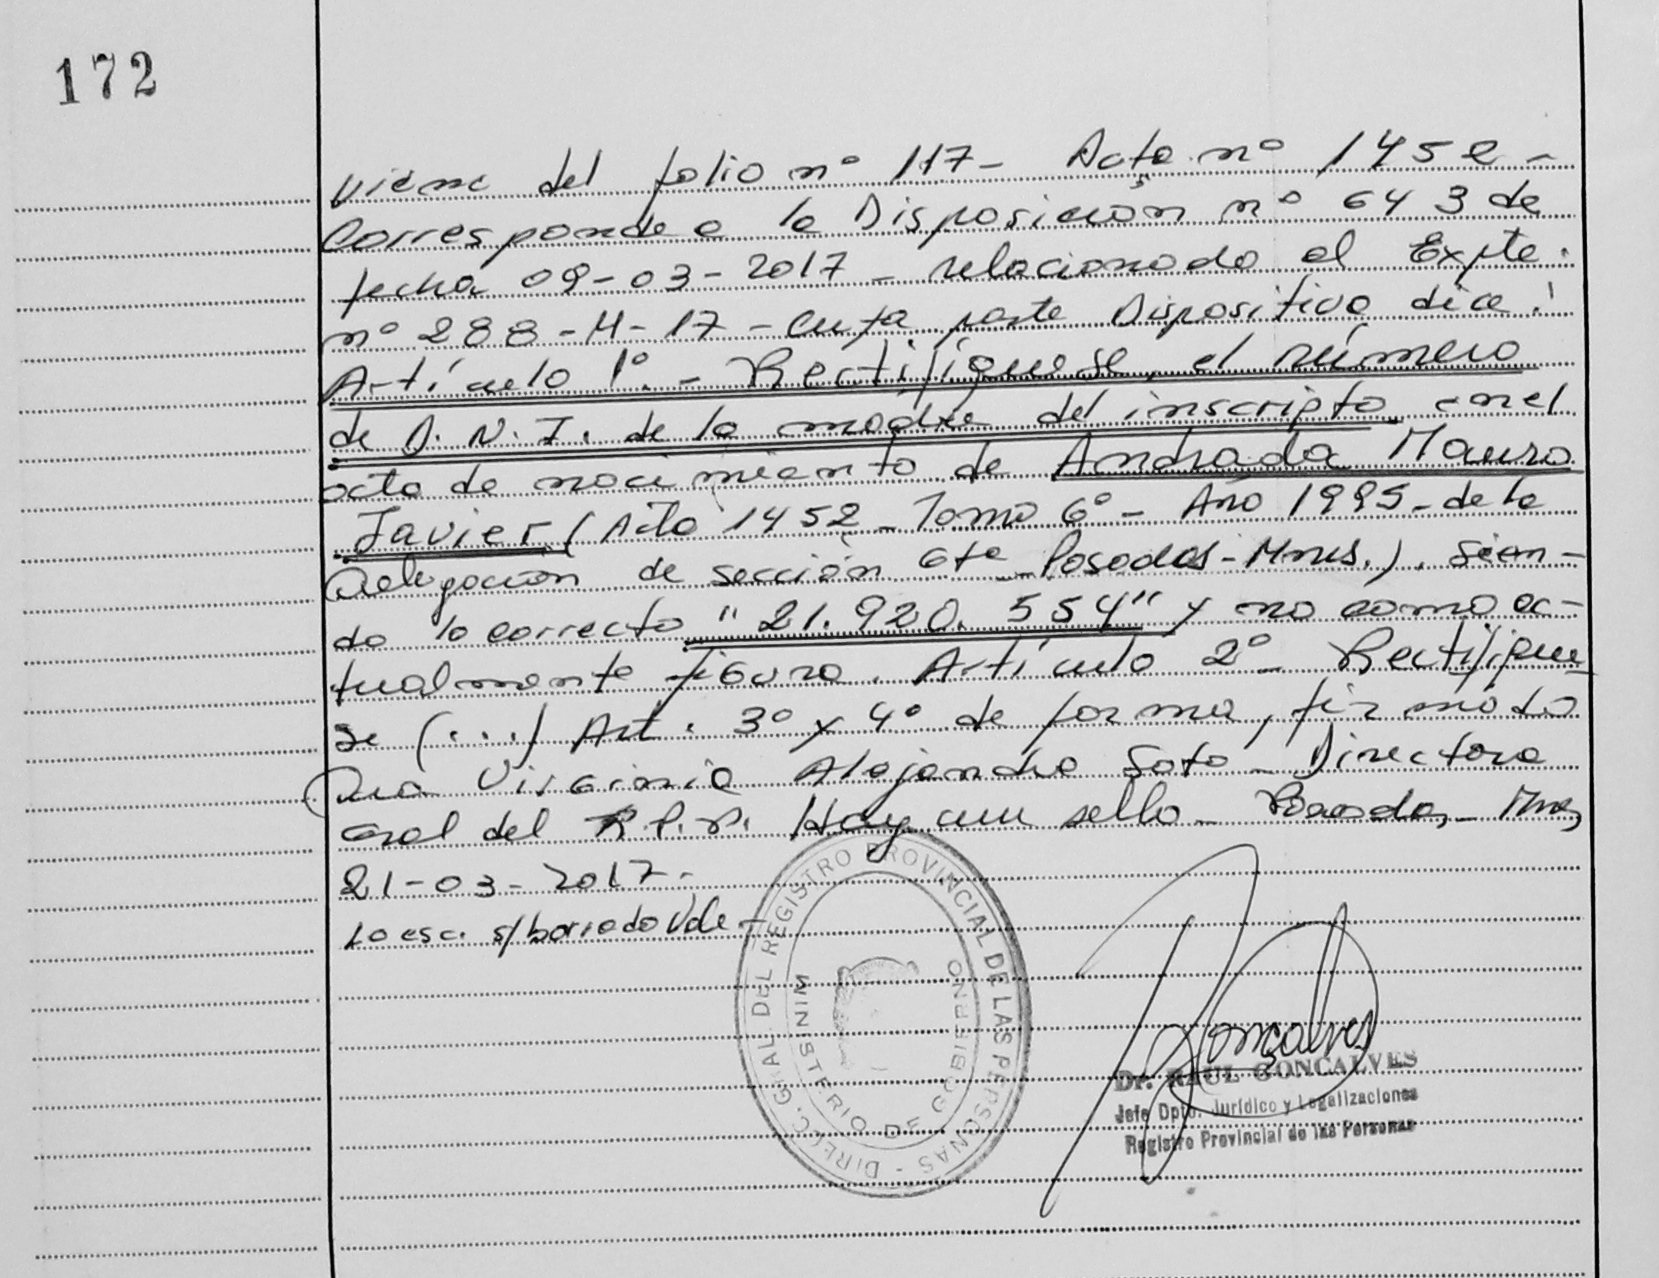 172
Viene del folio nº 117- Acta nº 1452-
Corresponde a la Disposición nº 643 de
fecha 09-03-2017- relacionado al Expte.
nº 288-M-17- cuya parte Dispositiva dice:
Artículo 1º.- Rectifíquese, el número
de D.N.I. de la madre del inscripto en el
acta de nacimiento de Andrada Mauro
Javier (Acta 1452- Tomo 6º- Año 1995- de la
Delegación de sección 6ta Posadas-Mnes.). Sien-
do lo correcto "21.920.554" y no como ac-
tualmente figura. Artículo 2º- Rectifíque
se (...) Art. 3º y 4º de forma, firmado
Dra Virginia Alejandra Soto- Directora
Gral del R.P.P. Hay un sello- Posadas- Mnes,
21-03-2017-
Lo esc. s/borrado Vale-
DIRECC. GRAL DEL REGISTRO PROVINCIAL DE LAS PERSONAS -
MINISTERIO DE GOBIERNO
Goncalves
Dr. RAUL GONCALVES
Jefe Dpto. Jurídico y Legalizaciones
Registro Provincial de las Personas